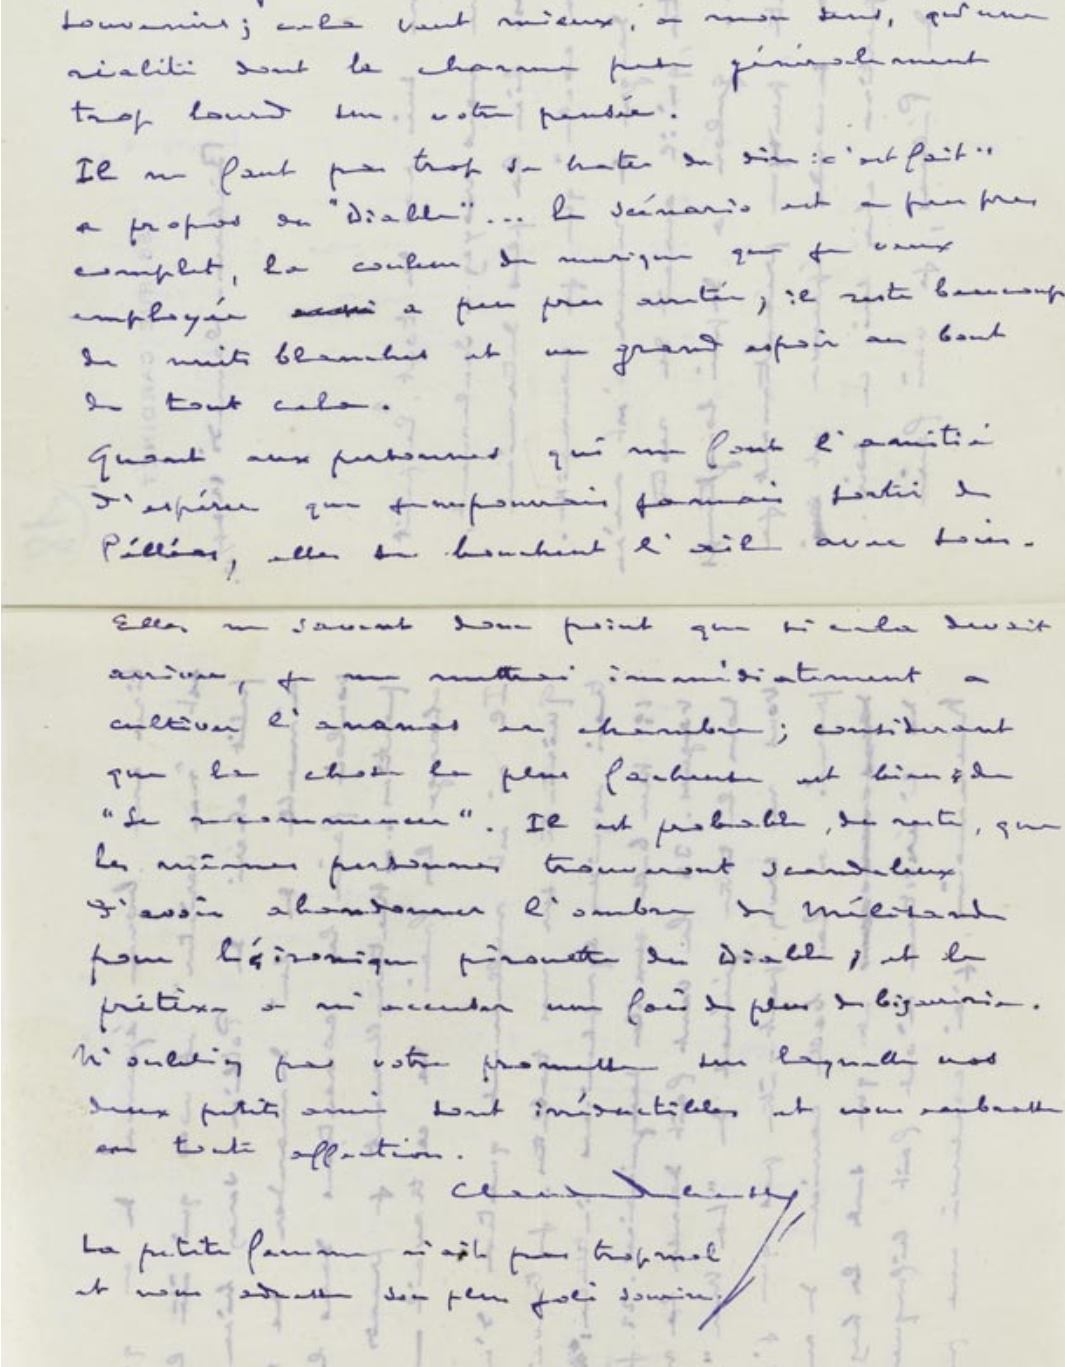 souvenirs; cela vaut mieux, a mon sens, qu'une
réalité dont le charme pese généralement
trop lourd sur votre pensée.
Il ne faut pas trop se hater de dire : c'est fait"
a propos du "Diable"... le scénario est a peu pres
complet, la couleur de musique que je veux
employée a peu pres arretée; il reste beaucoup
de nuits blanches et un grand espoir au bout
de tout cela.
Quant aux personnes qui me font l'amitié
d'espérer que je ne pourrais jamais sortir de
Pélléas, elles se bouchent l'œil avec soin.
Elles ne savent donc point que si cela devait
arriver, je me mettrai immédiatement a
cultiver l'ananas en chambre; considerant
que la chose la plus facheuse est bien de
"se recommencer". Il est probable, du reste, que
les mêmes personnes trouveront scandaleux
d'avoir abandonner l'ombre de Mélisande
pour l'ironique pirouette du Diable, et le
prétexte a m'accuser une fois de plus de bizarrerie.
N'oubliez pas votre promesse sur laquelle nos
deux petits amis sont irréductibles et vous embrasse
en toute affection.
Claude Debussy
La petite femme n'est pas trop mal
et vous adresse son plus joli sourire.